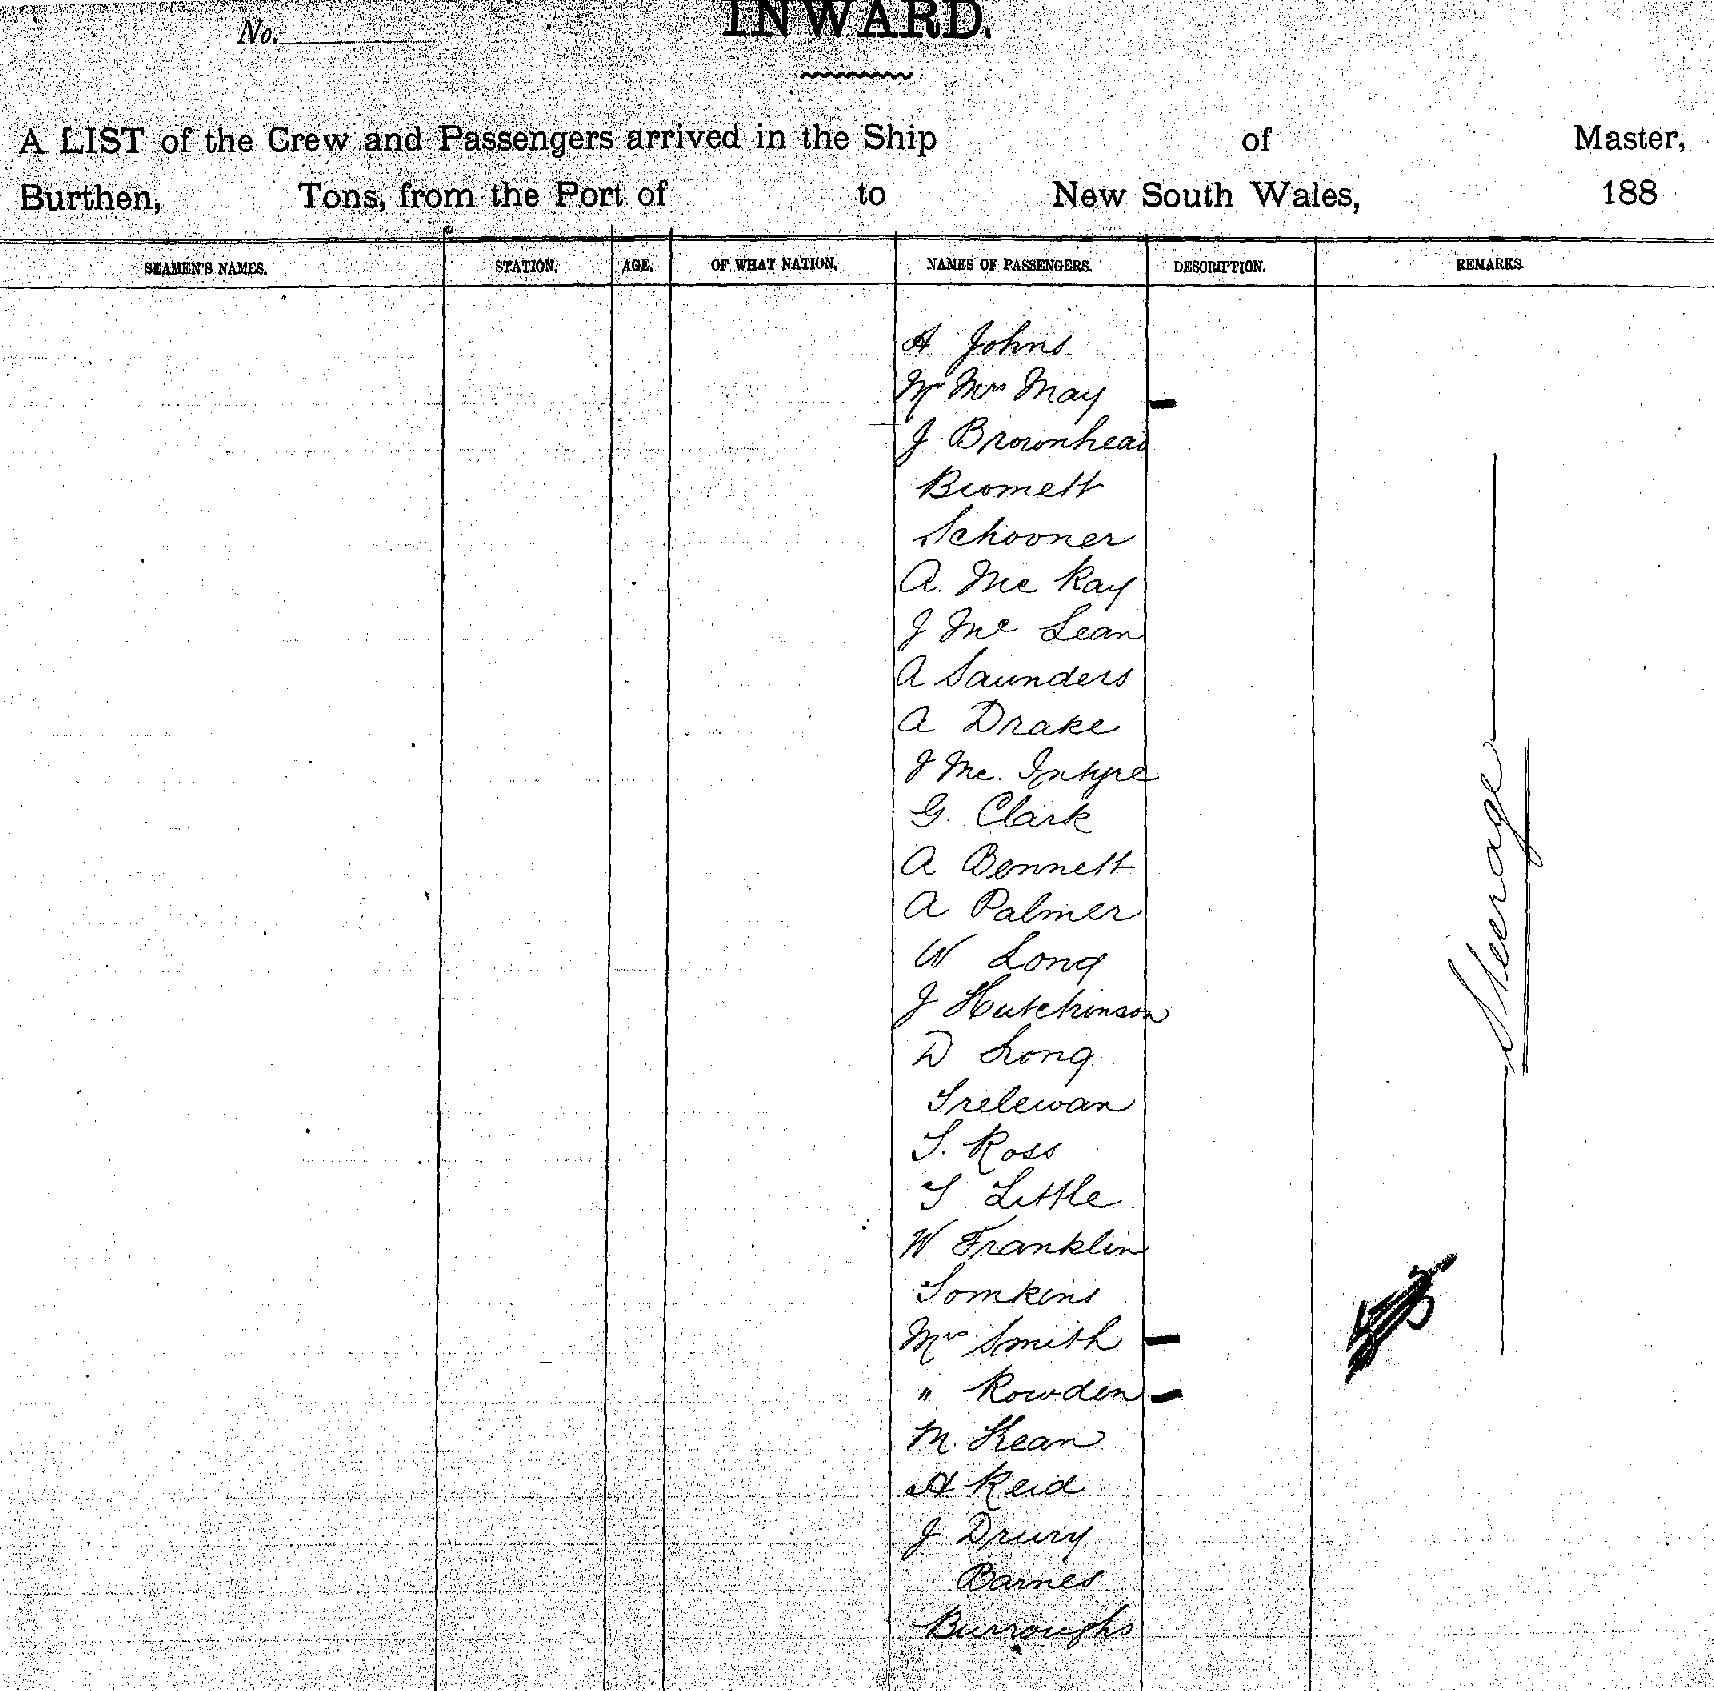 No.
INWARD.
A LIST of the Crew and Passengers arrived in the Ship of Master,
Burthen, Tons, from the Port of to New South Wales, 188
SEAMEN'S NAMES. STATION. AGE. OF WHAT NATION. NAMES OF PASSENGERS. DESCRIPTION. REMARKS.
A Johns
Mr Mrs May
J Brownhead
Schooner
A. Mc Kay
J Mc Lean
A Saunders
A Drake
J Mc. Intyre
G. Clark
A Bennett
A Palmer
W Long
J Hutchinson
D Long
Trelewan
T. Ross
T Little
W Franklin
Tomkins
Mrs Smith
" Rowden
M. Kean
A Reid
J Drury
Barnes
Burroughs
Steerage